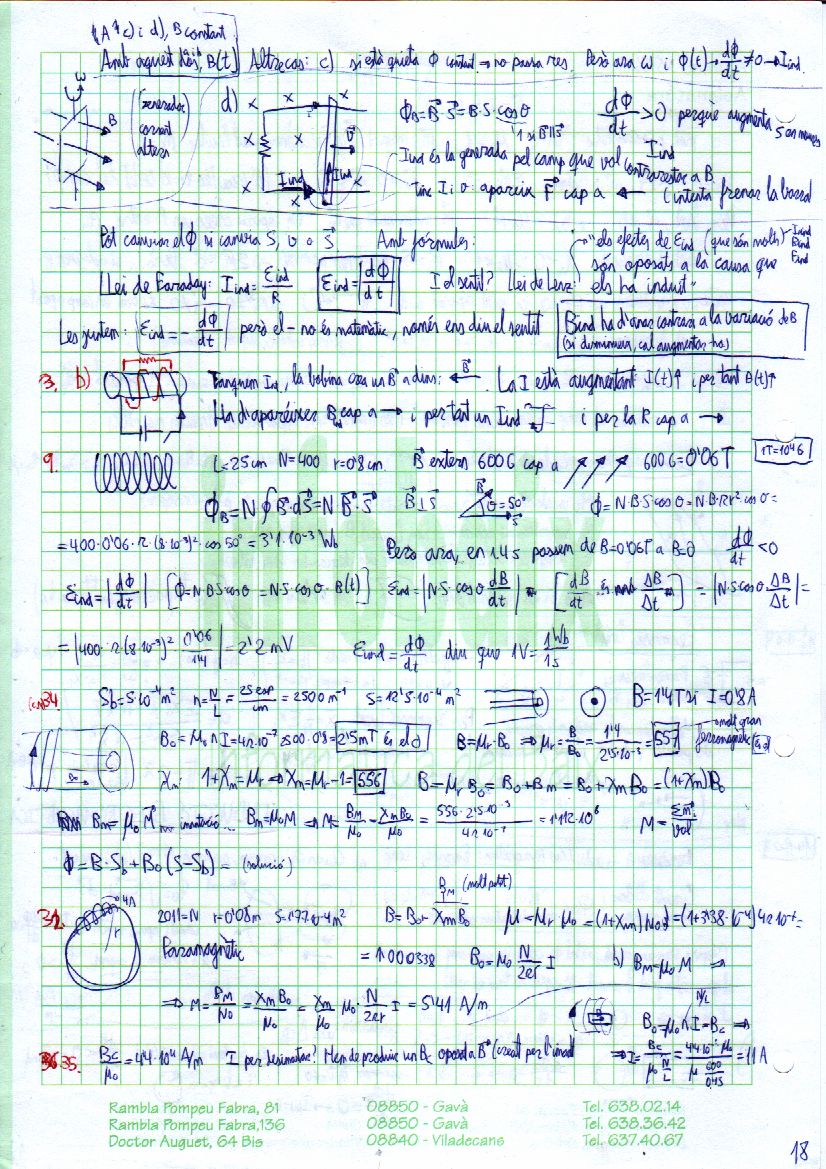 (A c) i d), B constant
Amb aquest , B(t) Altres cas: c) si està quieta Φ constant ⇒ no passa res. Però ara ω i Φ(t) → dΦ/dt ≠ 0 → I ind.
ω
B
(generador corrent altern)
d) X X X X X X
I ind
v
I ind
Φ_B = B·S = B·S·cosθ
1 si B∥S
dΦ/dt > 0 perquè augmenta S
I ind és la generada pel camp que vol contrarestar a B
I ind
tinc I i v: apareix F cap a ← (intenta frenar la barra)
Pot canviar el Φ si canvia S, o S. Amb fórmules:
"els efectes de E ind (que són molts) són oposats a la causa que els ha induït"
I ind
B ind
F ind
Llei de Faraday: I ind = E ind/R E ind = |dΦ/dt| I el sentit? Llei de Lenz:
Les juntem: E ind = - dΦ/dt però el - no és matemàtic, només ens diu el sentit
B ind ha d'anar contrari a la variació de B
(si disminueix, cal augmentar-ho)
3. b) Tanquem Int, la bobina crea un B a dins: ← B. La I està augmentant I(t)↑ i per tant B(t)↑
Ha d'aparèixer B ind cap a → i per tant un I ind i per la R cap a →
9. L = 25 cm N = 400 r = 0'8 cm. B extern 600 G cap a 600 G = 0'06 T
1T = 10^4 G
Φ_B = N ∮ B·dS = N B·S B⊥S B θ = 50° S Φ = N·B·S·cosθ = N·B·πr²·cosθ =
= 400·0'06·π·(8·10^-3)²·cos 50° = 3'1·10^-3 Wb
Però ara, en 1'4 s passem de B = 0'06T a B = 0 dΦ/dt < 0
E ind = |dΦ/dt| [Φ = N·B·S·cosθ = N·S·cosθ·B(t)] E ind = |N·S·cosθ dB/dt| = [dB/dt és ΔB/Δt] = |N·S·cosθ·ΔB/Δt| =
= |400·π(8·10^-3)²·0'06/1'4| = 2'2 mV E ind = dΦ/dt diu que 1V = 1Wb/1s
34. Sb = 5·10^-4 m² n = N/L = 25 esp/cm = 2500 m^-1 S = 12'5·10^-4 m² B = 1'4T si I = 0'8A
B0 = μ0 n I = 4π·10^-7·2500·0'8 = 2'5mT B = μr·B0 ⇒ μr = B/B0 = 1'4/2'5·10^-3 = 557 molt gran ferromagnètic
B0
Xm: 1+Xm = μr ⇒ Xm = μr - 1 = 556 B = μr B0 = B0 + Bm = B0 + Xm B0 = (1+Xm)B0
Bm = μ0 M Bm = μ0 M ⇒ M = Bm/μ0 = Xm B0/μ0 = 556·2'5·10^-3/4π·10^-7 = 1'112·10^6 M = Σm/Vol
Φ = B·Sb + B0(S-Sb) = (solució)
32. 2011 = N r = 0'08m S = 1'77·10^-4 m² B = B0 + Xm B0 μ = μr μ0 = (1+Xm)μ0 = (1+3'38·10^-4)4π·10^-7 =
B_M (molt petit)
r
Paramagnètic = 1'000338 B0 = μ0 N/2πr I b) B_M = μ0 M ⇒
⇒ M = B_M/μ0 = Xm B0/μ0 = Xm/μ0 μ0·N/2πr I = 5'41 A/m
N/L
B0 = μ0 n I = Bc ⇒
35. Bc/μ0 = 4'4·10^4 A/m I per desimantar? Hem de produir un Bc oposat a B (creat per l'imant) ⇒ I = Bc/μ0 N/L = 4'4·10^4 μ0/μ 600/0'15 = 11 A
Rambla Pompeu Fabra, 81 08850 - Gavà Tel. 638.02.14
Rambla Pompeu Fabra,136 08850 - Gavà Tel. 638.36.42
Doctor Auguet, 64 Bis 08840 - Viladecans Tel. 637.40.67
18